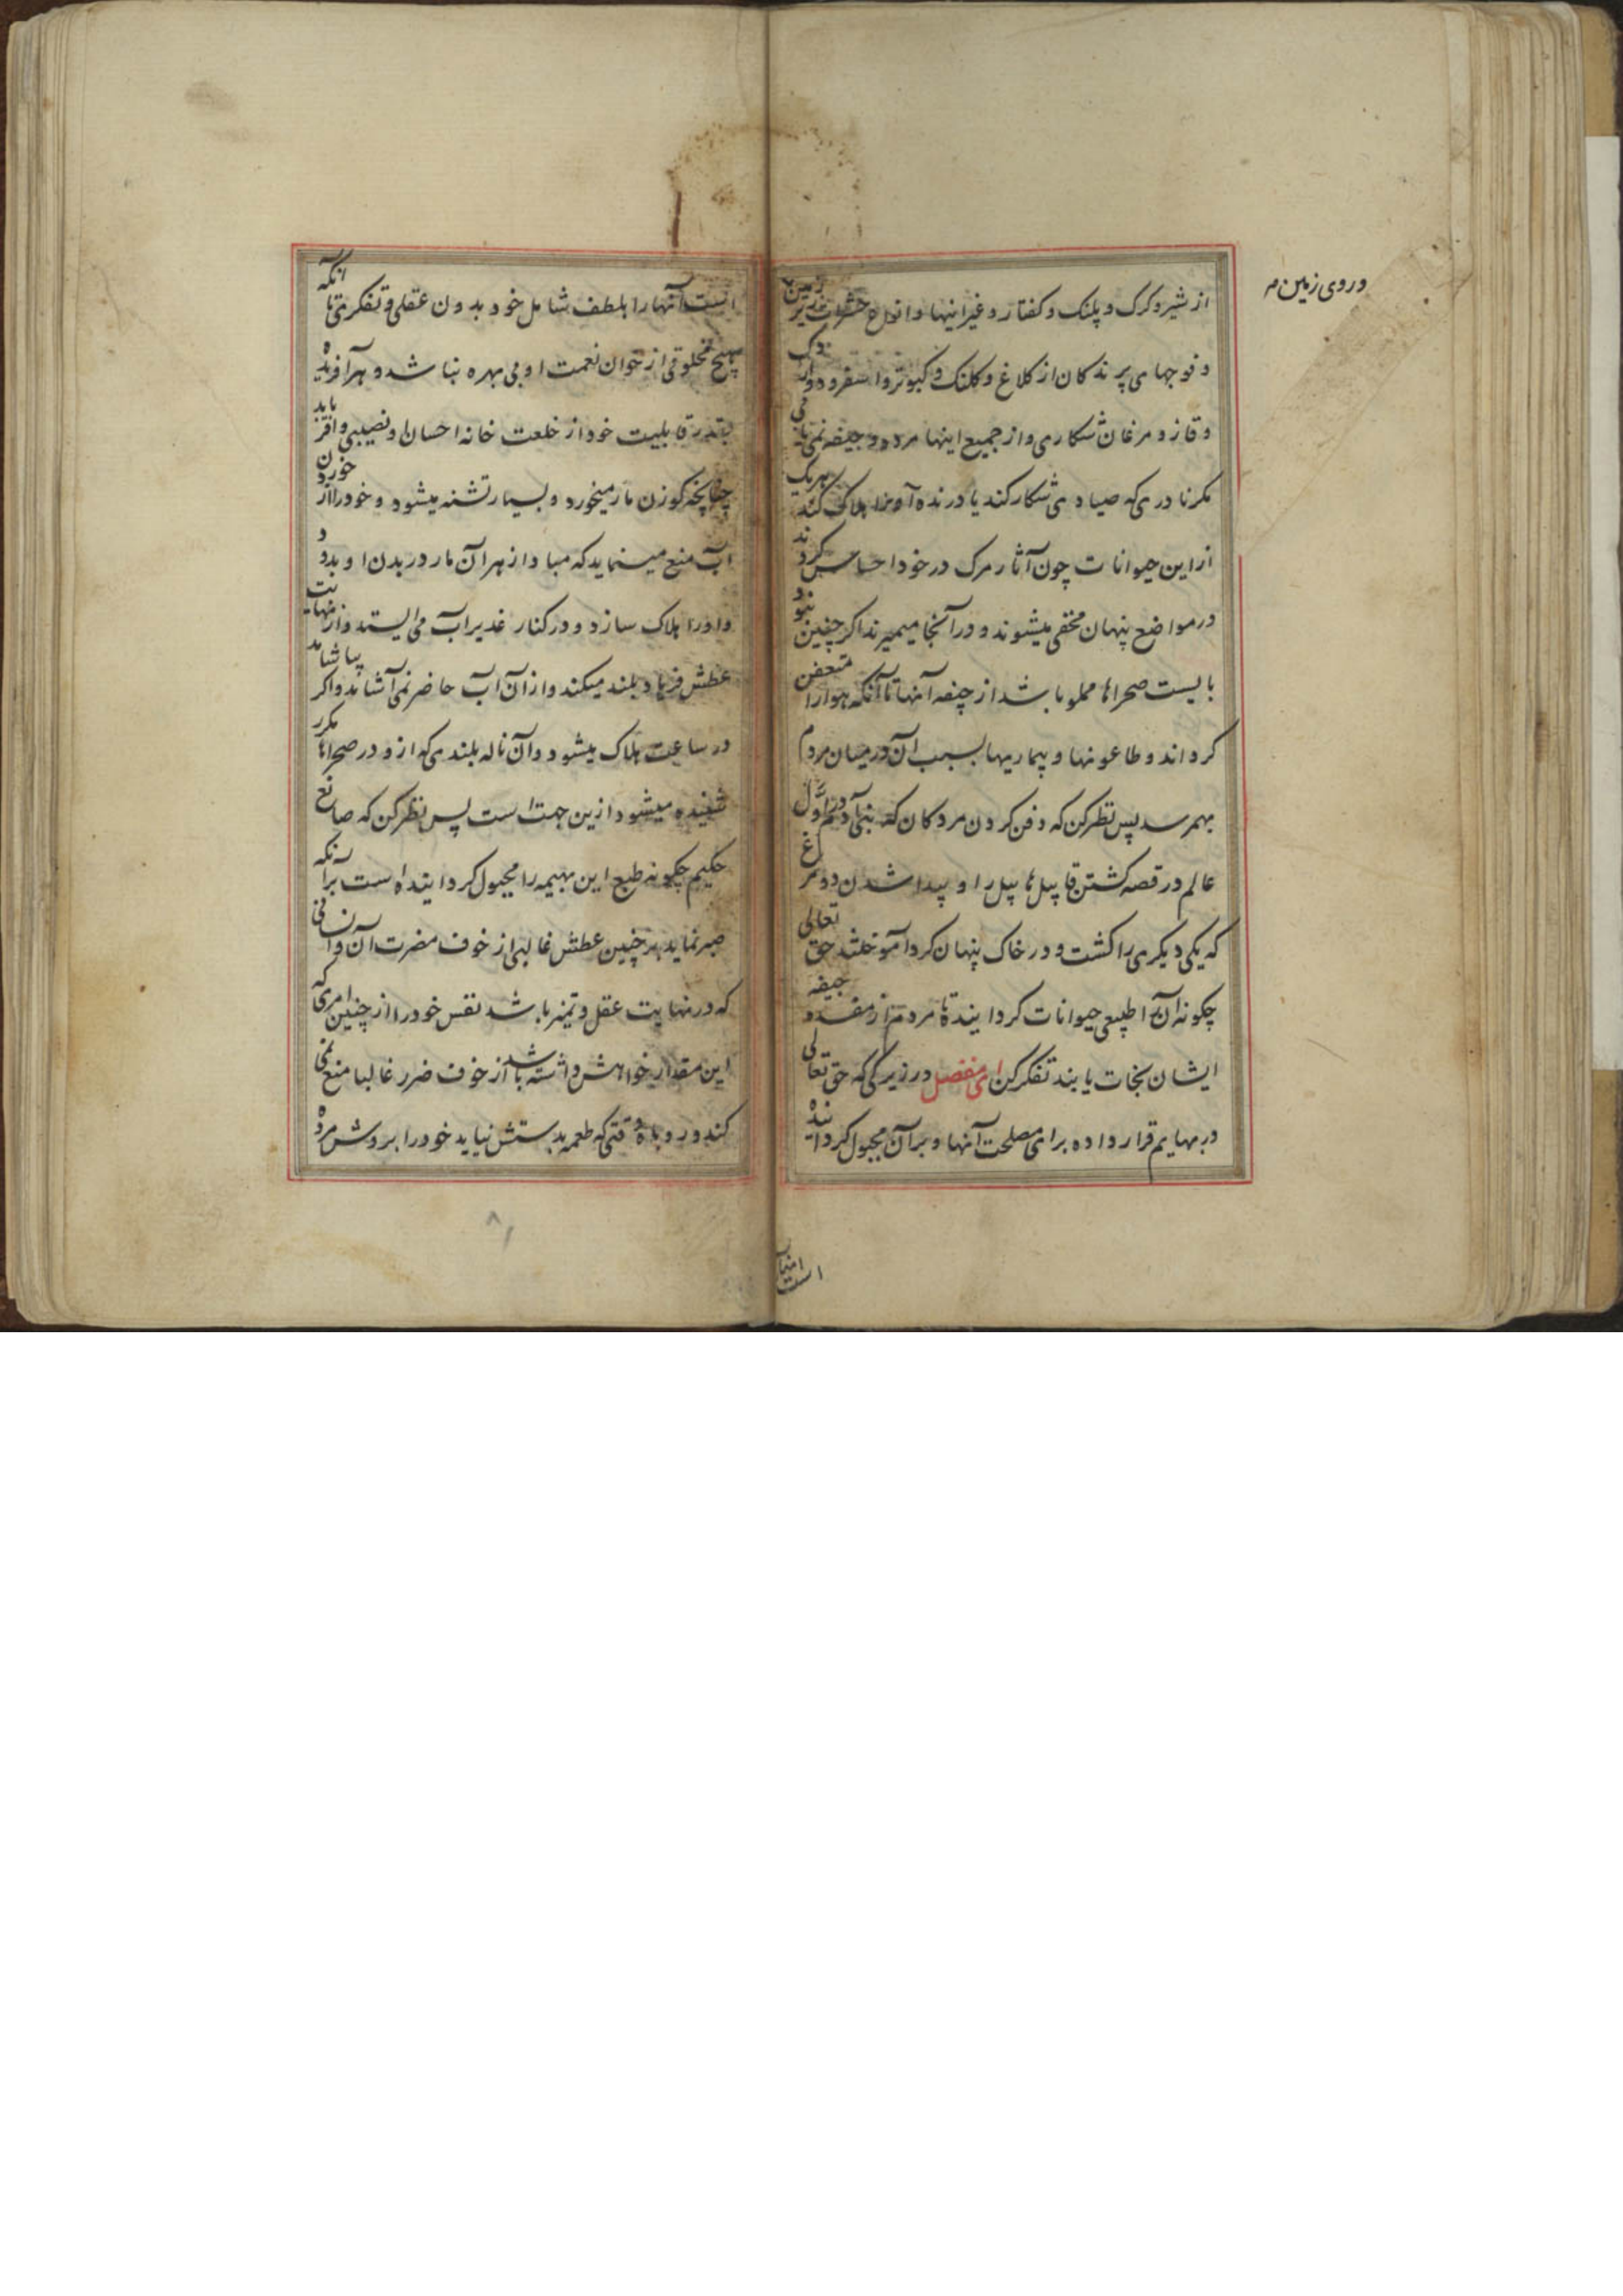 از شیر و کرک و پلنک و کفتار و غیر اینها و انواع حشرات زیر زمین
و روی زمین
و فوجهای پرندکان از کلاغ و کلنک و کبوتر و اسفرود و اردک
و قاز و مرغان شکاری و از جمیع اینها مرده و جیفه نمی یابی
مکر نادری که صیادی شکار کند یا درنده آنرا هلاک کند هریک
از این حیوانات چون آثار مرک در خود احساس کردند
در مواضع پنهان مخفی میشوند و در آنجا میمیرند اکر چنین نبود
بایست صحراها مملو باشد از جیفه آنها تا آنکه هوا را متعفن
کرداند و طاعونها و بیماریها بسبب آن در میان مردم
بهمرسد پس نظر کن که دفن کردن مردکان که بنی آدم در اوّل
عالم در قصه کشتن قابیل هابیل را و پیدا شدن دو مرغ
که یکی دیکری را کشت و در خاک پنهان کرد آموختند حق تعالی
چکونه آنرا طبیعی حیوانات کردانیده تا مردم از مفسده جیفه
ایشان نجات یابند تفکر کن ای مفضل در زیرکی که حق تعالی
در بهایم قرار داده برای مصلحت آنها و بر آن مجبول کردانیده
است آنها را بلطف شامل خود بدون عقلی و تفکری تا انکه
هیچ مخلوقی از خوان نعمت او بی بهره نباشد و هر آفریده
بقدر قابلیت خود از خلعت خانه احسان او نصیبی وافر یابد
چنانچه کوزن مار میخورد و بسیار تشنه میشود و خود را از خوردن
آب منع مینماید که مبادا زهر آن مار در بدن او بدود
و او را هلاک سازد و در کنار غدیر آب می ایستد و از نهایت
عطش فریاد بلند میکند و از آن آب حاضر نمی آشامد و اکر بیاشامد
در ساعت هلاک میشود و آن ناله بلندی که ازو در صحراها مکرر
شنیده میشود ازین جهت است پس نظر کن که صانع
حکیم چکونه طبع این بهیمه را مجبول کردانیده است برآنکه
صبر نماید بر چنین عطش غالبی از خوف مضرت آن و انسانی
که در نهایت عقل و تمیز باشد نفس خود را از چنین امری که
این مقدار خواهش داشته باشد از خوف ضرر غالبا منع نمی
کند و روباه وقتی که طعمه بدستش نیاید خود را بروش مرده
است آنها
۸۱